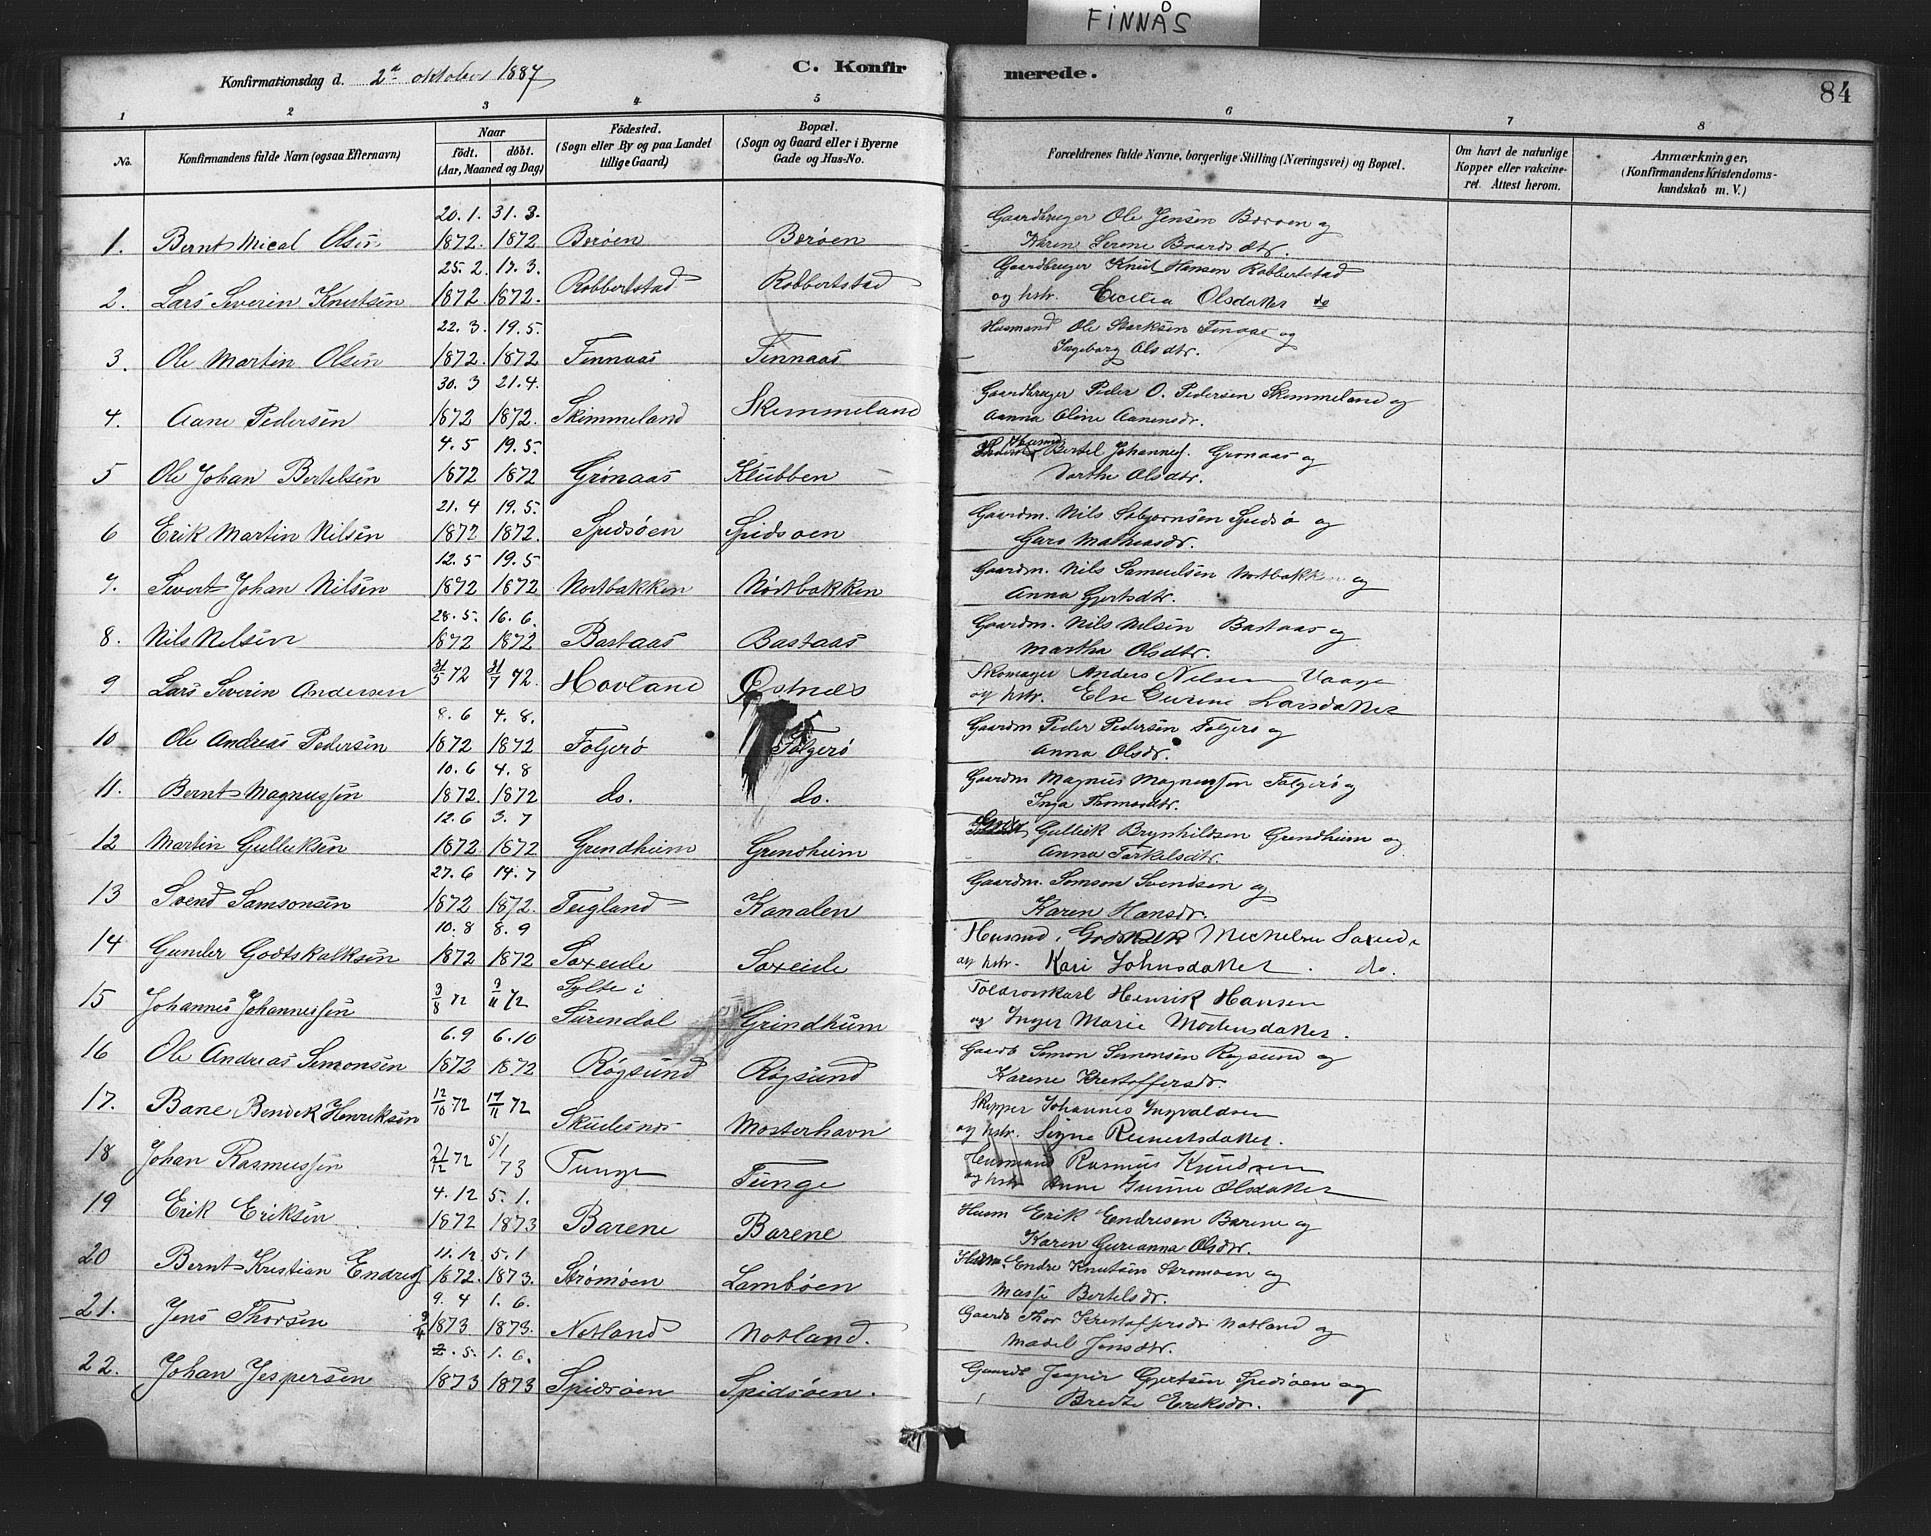 FINNÅS
84
Konfirmationsdag d. 2den oktober 1887
C. Konfirmerede.
1 2 3 4 5 6 7 8
No.
Konfirmandens fulde Navn (ogsaa Efternavn)
Naar
födt. döbt.
(Aar, Maaned og Dag)
Födested.
(Sogn eller By og paa Landet
tillige Gaard)
Bopæl.
(Sogn og Gaard eller i Byerne
Gade og Hus-No.
Forældrenes fulde Navne, borgerlige Stilling (Næringsvei) og Bopæl.
Om havt de naturlige
Kopper eller vakcine-
ret. Attest herom.
Anmærkninger,
(Konfirmandens Kristendoms-
kundskab m. V.)
20.1. 31.3. Gaardbruger Ole Jensen Beroen og
1. Bernt Mical Olsen 1872. 1872 Berøen Berøen Karen Serine Baards dtr.
25.2. 17.3. Gaardbruger Knut Hansen Robbertstad
2. Lars Severin Knutsen 1872 1872. Robbertstad Robbertstad og hstr. Cecilia Olsdatter do
22.3. 19.5. Husmand Ole Starksen Finaas og
3. Ole Martin Olsen 1872. 1872 Finnaas Finnaas Ingeborg Olsdtr.
30.3 21.4. Gaardbruger Peder O. Pedersen Skimmeland og
4. Aane Pedersen 1872 1872. Skimmeland Skimmeland Aanna Oline Aanensdr.
4.5 19.5. Husmd Bertel Johannes. Gronaas og
5 Ole Johan Bertelsen 1872 1872 Grønaas Klubben Marthe Olsdtr.
21.4 19.5. Gaardm. Nils Asbjornsen Spidsø og
6 Erik Martin Nilsen 1872 1872. Spidsøen Spidsoen Guro Mathiasdr.
12.5 19.5 Gaardm. Nils Samuelsen Nortbakken og
7. Sivert Johan Nilsen 1872 1872 Nortbakken Nørtbakken Anna Gjertsdtr.
28.5. 16.6. Gaardm. Nils Nilsen Bastaas og
8. Nils Nilsen 1872 1872 Bastaas Bastaas Martha Olsdtr.
9 Lars Severin Andersen 31/5 72 31/7 72. Hovland Østnes Skomager Anders Nilsen Vaage
og hstr. Else Gurine Larsdatter
8.6 4.8. Gaardm Peder Pedersen Folgero og
10. Ole Andreas Pedersen 1872 1872 Folgerø Folgerø Anna Olsdr.
10.6 4.8 Gaardm Magnus Magnussen Folgerø og
11. Bernt Magnussen 1872. 1872 do. do. Inga Thomasdtr.
12.6 3.7 Gullik Brynhildsen Grendheim og
12 Martin Gulliksen 1872 1872 Grendheim Grendheim Anna Torkelsdtr.
27.6 14.7 Gaardm. Samson Svendsen og
13 Svend Samsonsen 1872 1872. Tegland Kanalen Karen Hansdr.
10.8 8.9 Husmd. Godskalk Michelsen Saxeide
14 Gunder Godtskalksen 1872 1872 Saxeide Saxeide og hstr. Kari Johnsdatter. do.
15 Johannes Johannessen 3/8 72 3/11 72 Sylte i Surendal Grindheim Toldroerskarl Henrik Hansen
og Inger Marie Mortensdatter.
6.9 6.10 Gaardb Simon Simonsen Røgsund og
16 Ole Andreas Simonsen 1872 1872 Røgsund Røgsund Karene Kristoffersdr.
17. Bane Bendik Henriksen 12/10 72 17/11 72 Skudesnes Mosterhavn Skipper Johannes Ingvaldsen
og hstr. Signe Reinertsdatter.
18 Johan Rasmussen 21/12 72 5/1 73 Tunge Tunge Husmand Rasmus Knudsen
og hstr Anne Gurine Olsdatter
4.12 5.1. Husm Erik Endresen Barene og
19 Erik Eriksen 1872 1873 Barene Barene Karen Gurianna Olsdtr.
11.12 5.1 Husm. Endre Knutsen Stromoen og
20 Bernt Kristian Endres 1872. 1873. Strømøen Lambøen Massi Bertelsdr.
9.4 1.6. Gaardb Thor Kristoffersdr Notland og
21. Jens Thorsen 3/4 1873 1873. Notland Notland. Madel Jensdtr.
2.5. 1.6. Gaardb Jesper Gjertsen Spidsøen og
22. Johan Jespersen 1873 1873 Spidsøen Spidsøen. Bredte Eriksdr.